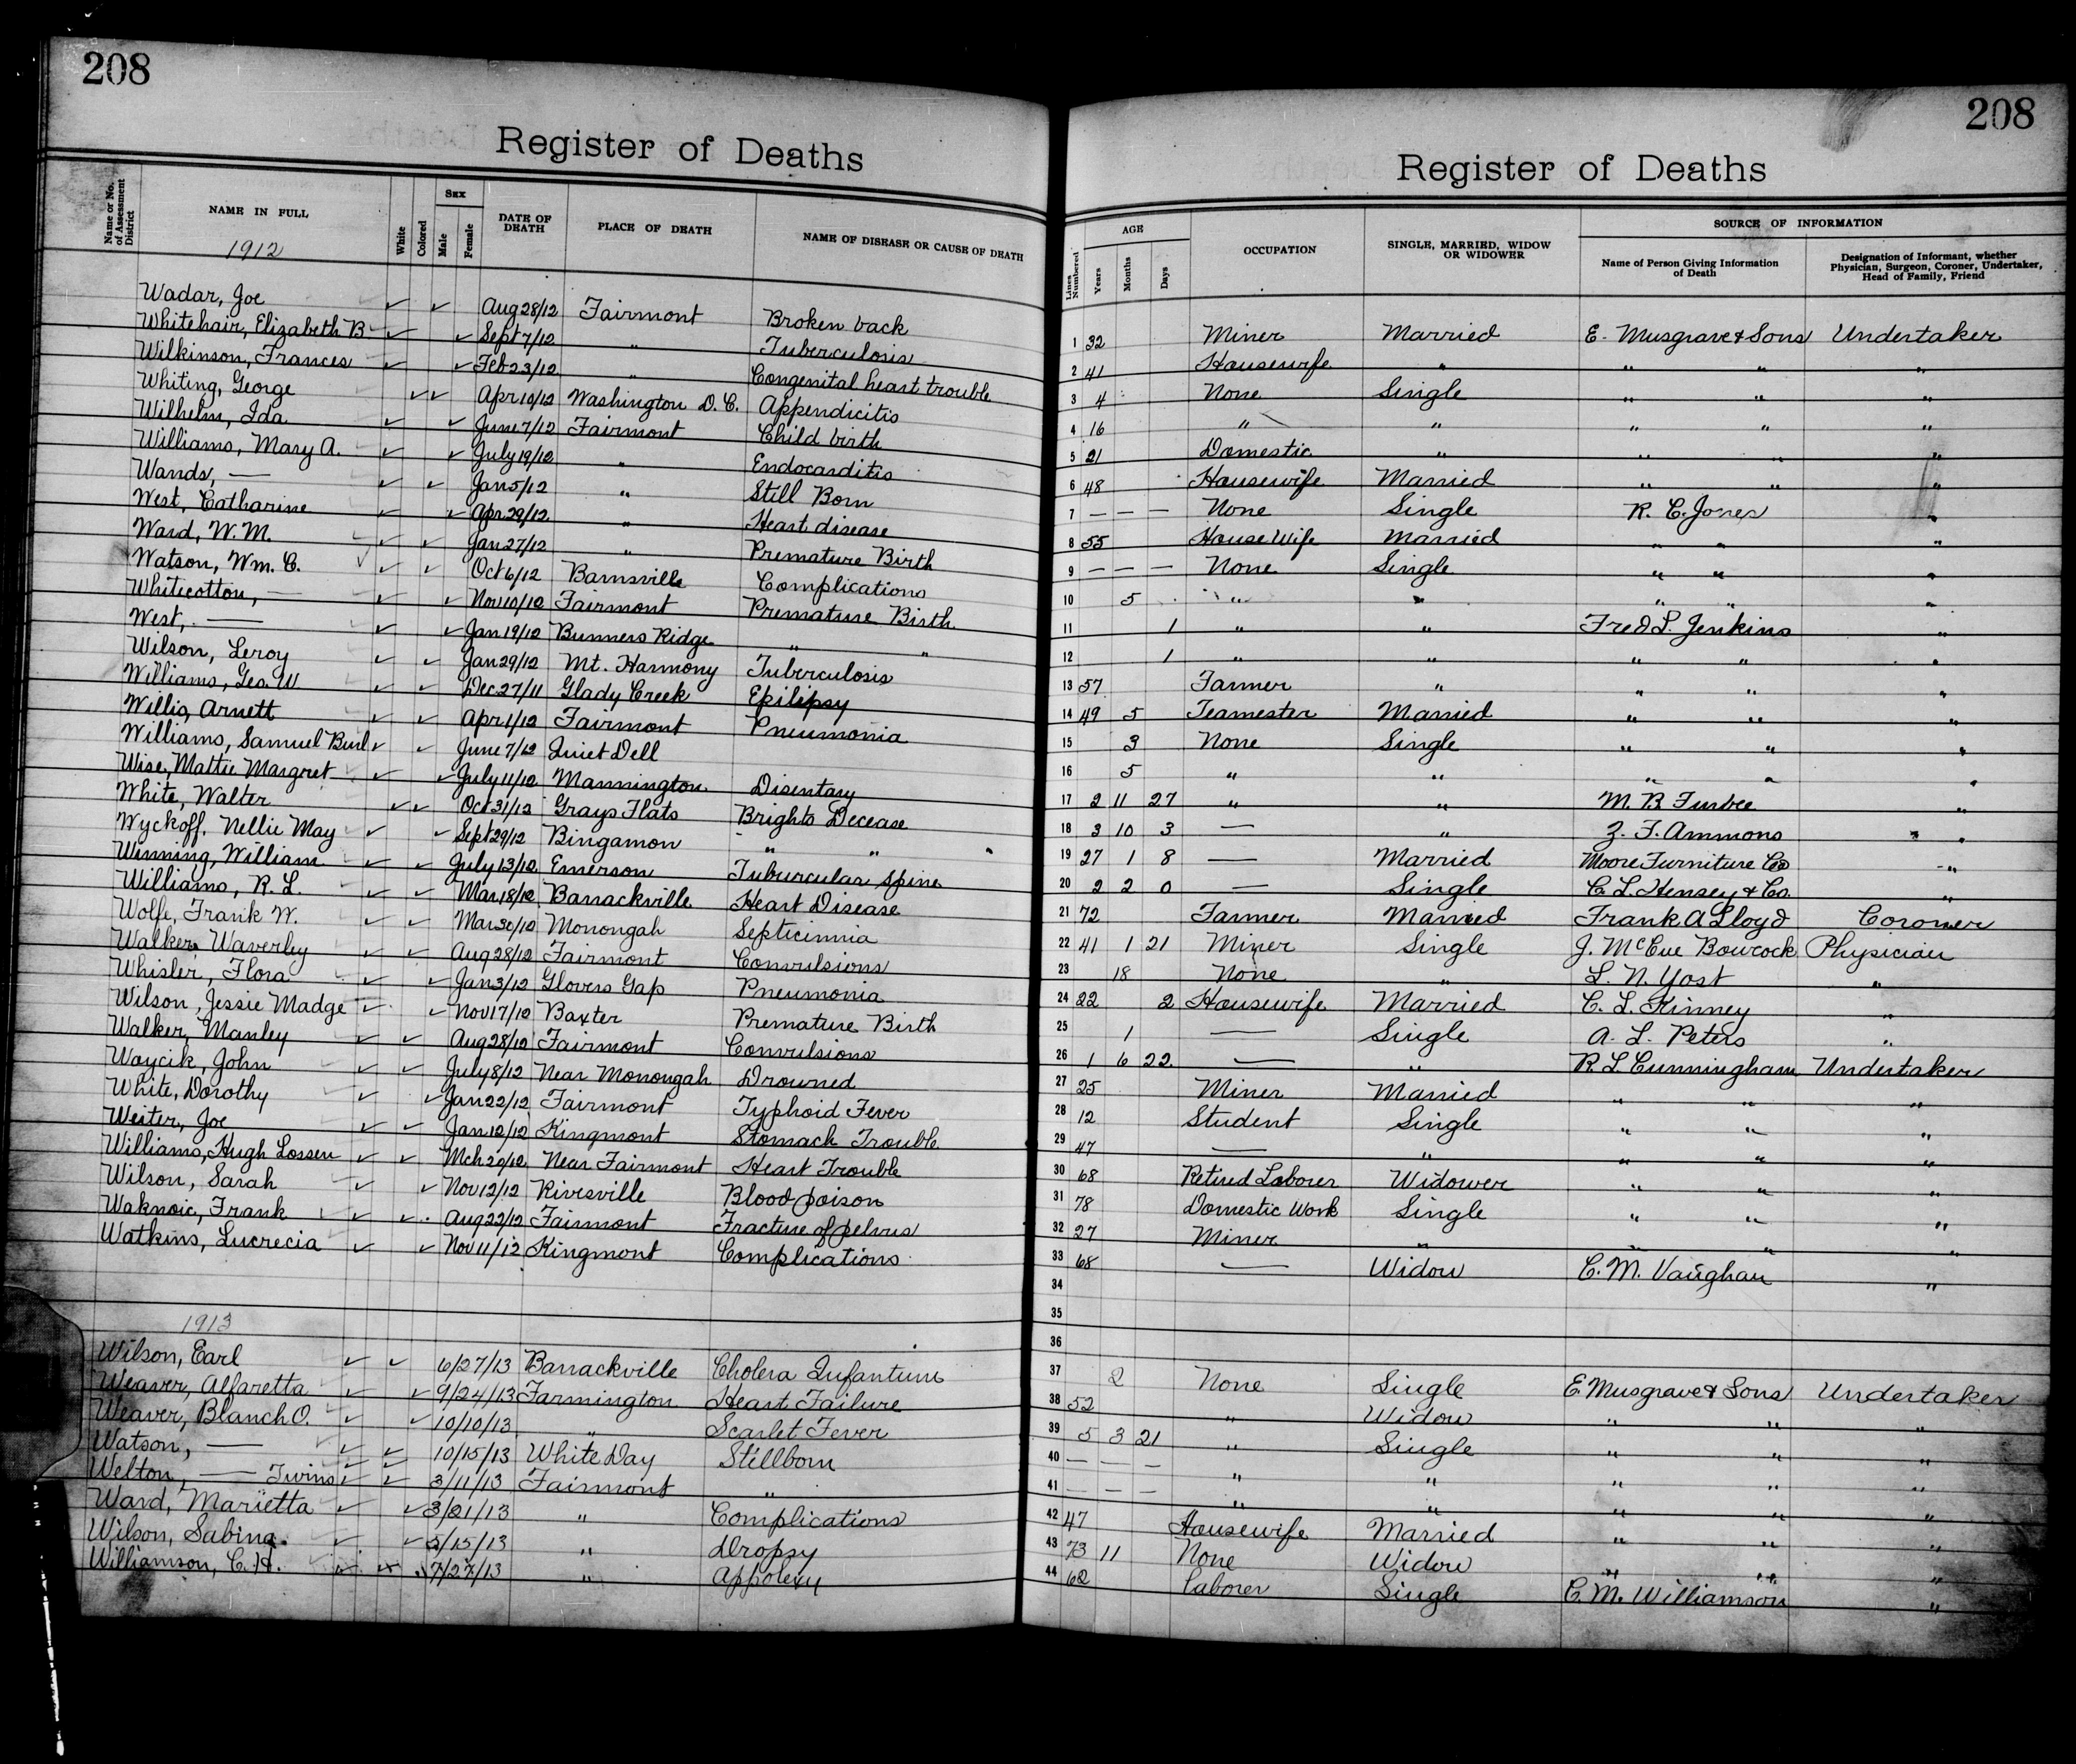 208
Register of Deaths
Name or No. of Assessment District | NAME IN FULL | White | Colored | SEX Male | Female | DATE OF DEATH | PLACE OF DEATH | NAME OF DISEASE OR CAUSE OF DEATH
1912
Wadar, Joe ✓ ✓ Aug 28/12 Fairmont Broken back
Whitehair, Elizabeth B ✓ ✓ Sept 7/12 " Tuberculosis
Wilkinson, Frances ✓ ✓ Feb 23/12 " Congenital heart trouble
Whiting, George ✓ ✓ Apr 10/12 Washington D. C. Appendicitis
Wilhelm, Ida ✓ ✓ June 7/12 Fairmont Child birth
Williams, Mary A. ✓ ✓ July 19/12 " Endocarditis
Wands, — ✓ ✓ Jan 5/12 " Still Born
West, Catharine ✓ ✓ Apr 29/12 " Heart disease
Ward, W. M. ✓ ✓ Jan 27/12 " Premature Birth
Watson, Wm. C. ✓ ✓ Oct 6/12 Barnsville Complications
Whitecotton, — ✓ ✓ Nov 10/12 Fairmont Premature Birth
West, — ✓ ✓ Jan 19/12 Bunners Ridge " "
Wilson, Leroy ✓ ✓ Jan 29/12 Mt. Harmony Tuberculosis
Williams, Geo. W. ✓ ✓ Dec 27/11 Glady Creek Epilipsy
Willis, Arnett ✓ ✓ Apr 1/12 Fairmont Pneumonia
Williams, Samuel Burl ✓ ✓ June 7/12 Quiet Dell
Wise, Mattie Margret ✓ ✓ July 11/12 Mannington Disentary
White, Walter ✓ ✓ Oct 31/12 Grays Flats Brights Decease
Wyckoff, Nellie May ✓ ✓ Sept 29/12 Bingamon " " "
Winning, William ✓ ✓ July 13/12 Emerson Tuburcular Spine
Williams, R. L. ✓ ✓ Mar 18/12 Barrackville Heart Disease
Wolfe, Frank W. ✓ ✓ Mar 30/12 Monongah Septicimnia
Walker, Waverley ✓ ✓ Aug 28/12 Fairmont Convulsions
Whisler, Flora ✓ ✓ Jan 3/12 Glovers Gap Pneumonia
Wilson, Jessie Madge ✓ ✓ Nov 17/12 Baxter Premature Birth
Walker, Manley ✓ ✓ Aug 28/12 Fairmont Convulsions
Waycik, John ✓ ✓ July 8/12 Near Monongah Drowned
White, Dorothy ✓ ✓ Jan 22/12 Fairmont Typhoid Fever
Weiter, Joe ✓ ✓ Jan 12/12 Kingmont Stomack Trouble
Williams, Hugh Lossen ✓ ✓ Mch 20/12 Near Fairmont Heart Trouble
Wilson, Sarah ✓ ✓ Nov 12/12 Rivesville Blood poison
Waknoic, Frank ✓ ✓ Aug 22/12 Fairmont Fracture of pelvis
Watkins, Lucrecia ✓ ✓ Nov 11/12 Kingmont Complications
1913
Wilson, Earl ✓ ✓ 6/27/13 Barrackville Cholera Infantum
Weaver, Alfaretta ✓ ✓ 9/24/13 Farmington Heart Failure
Weaver, Blanch O. ✓ ✓ 10/10/13 " Scarlet Fever
Watson, — ✓ ✓ 10/15/13 White Day Stillborn
Welton, — Twins ✓ ✓ 3/11/13 Fairmont "
Ward, Marietta ✓ ✓ 3/21/13 " Complications
Wilson, Sabina ✓ ✓ 5/15/13 " Dropsy
Williamson, C. H. 7/27/13 " Appolexy
208
Register of Deaths
Lines Numbered | AGE Years | Months | Days | OCCUPATION | SINGLE, MARRIED, WIDOW OR WIDOWER | SOURCE OF INFORMATION
Name of Person Giving Information of Death | Designation of Informant, whether Physician, Surgeon, Coroner, Undertaker, Head of Family, Friend
1 32 Miner Married E. Musgrave & Sons Undertaker
2 41 Housewife " " " "
3 4 None Single " " "
4 16 " " " " "
5 21 Domestic " " " "
6 48 Housewife Married " " "
7 — — — None Single R. C. Jones "
8 55 House Wife Married " " "
9 — — — None Single " " "
10 5 " " " " "
11 1 " " Fred S. Jenkins "
12 1 " " " " "
13 57 Farmer " " " "
14 49 5 Teamester Married " " "
15 3 None Single " " "
16 5 " " " " "
17 2 11 27 " " M. B Furbee "
18 3 10 3 — " Z. F. Ammons "
19 27 1 8 — Married Moore Furniture Co "
20 2 2 0 — Single C. L. Hensey & Co. "
21 72 Farmer Married Frank A Lloyd Coroner
22 41 1 21 Miner Single J. McEue Bowcock Physician
23 18 None " L. N. Yost "
24 22 2 Housewife Married C. L. Kinney "
25 1 — Single A. L. Peters "
26 1 6 22 — " R. L Cunningham Undertaker
27 25 Miner Married " " "
28 12 Student Single " " "
29 47 — " " " "
30 68 Retired Laborer Widower " " "
31 78 Domestic Work Single " " "
32 27 Miner " " " "
33 68 — Widow C. M. Vaughan "
34
35
36
37 2 None Single E. Musgrave & Sons Undertaker
38 52 " Widow " " "
39 5 3 21 " Single " " "
40 — — — " " " " "
41 — — — " " " " "
42 47 Housewife Married " " "
43 73 11 None Widow " " "
44 62 Laborer Single C. M. Williamson "